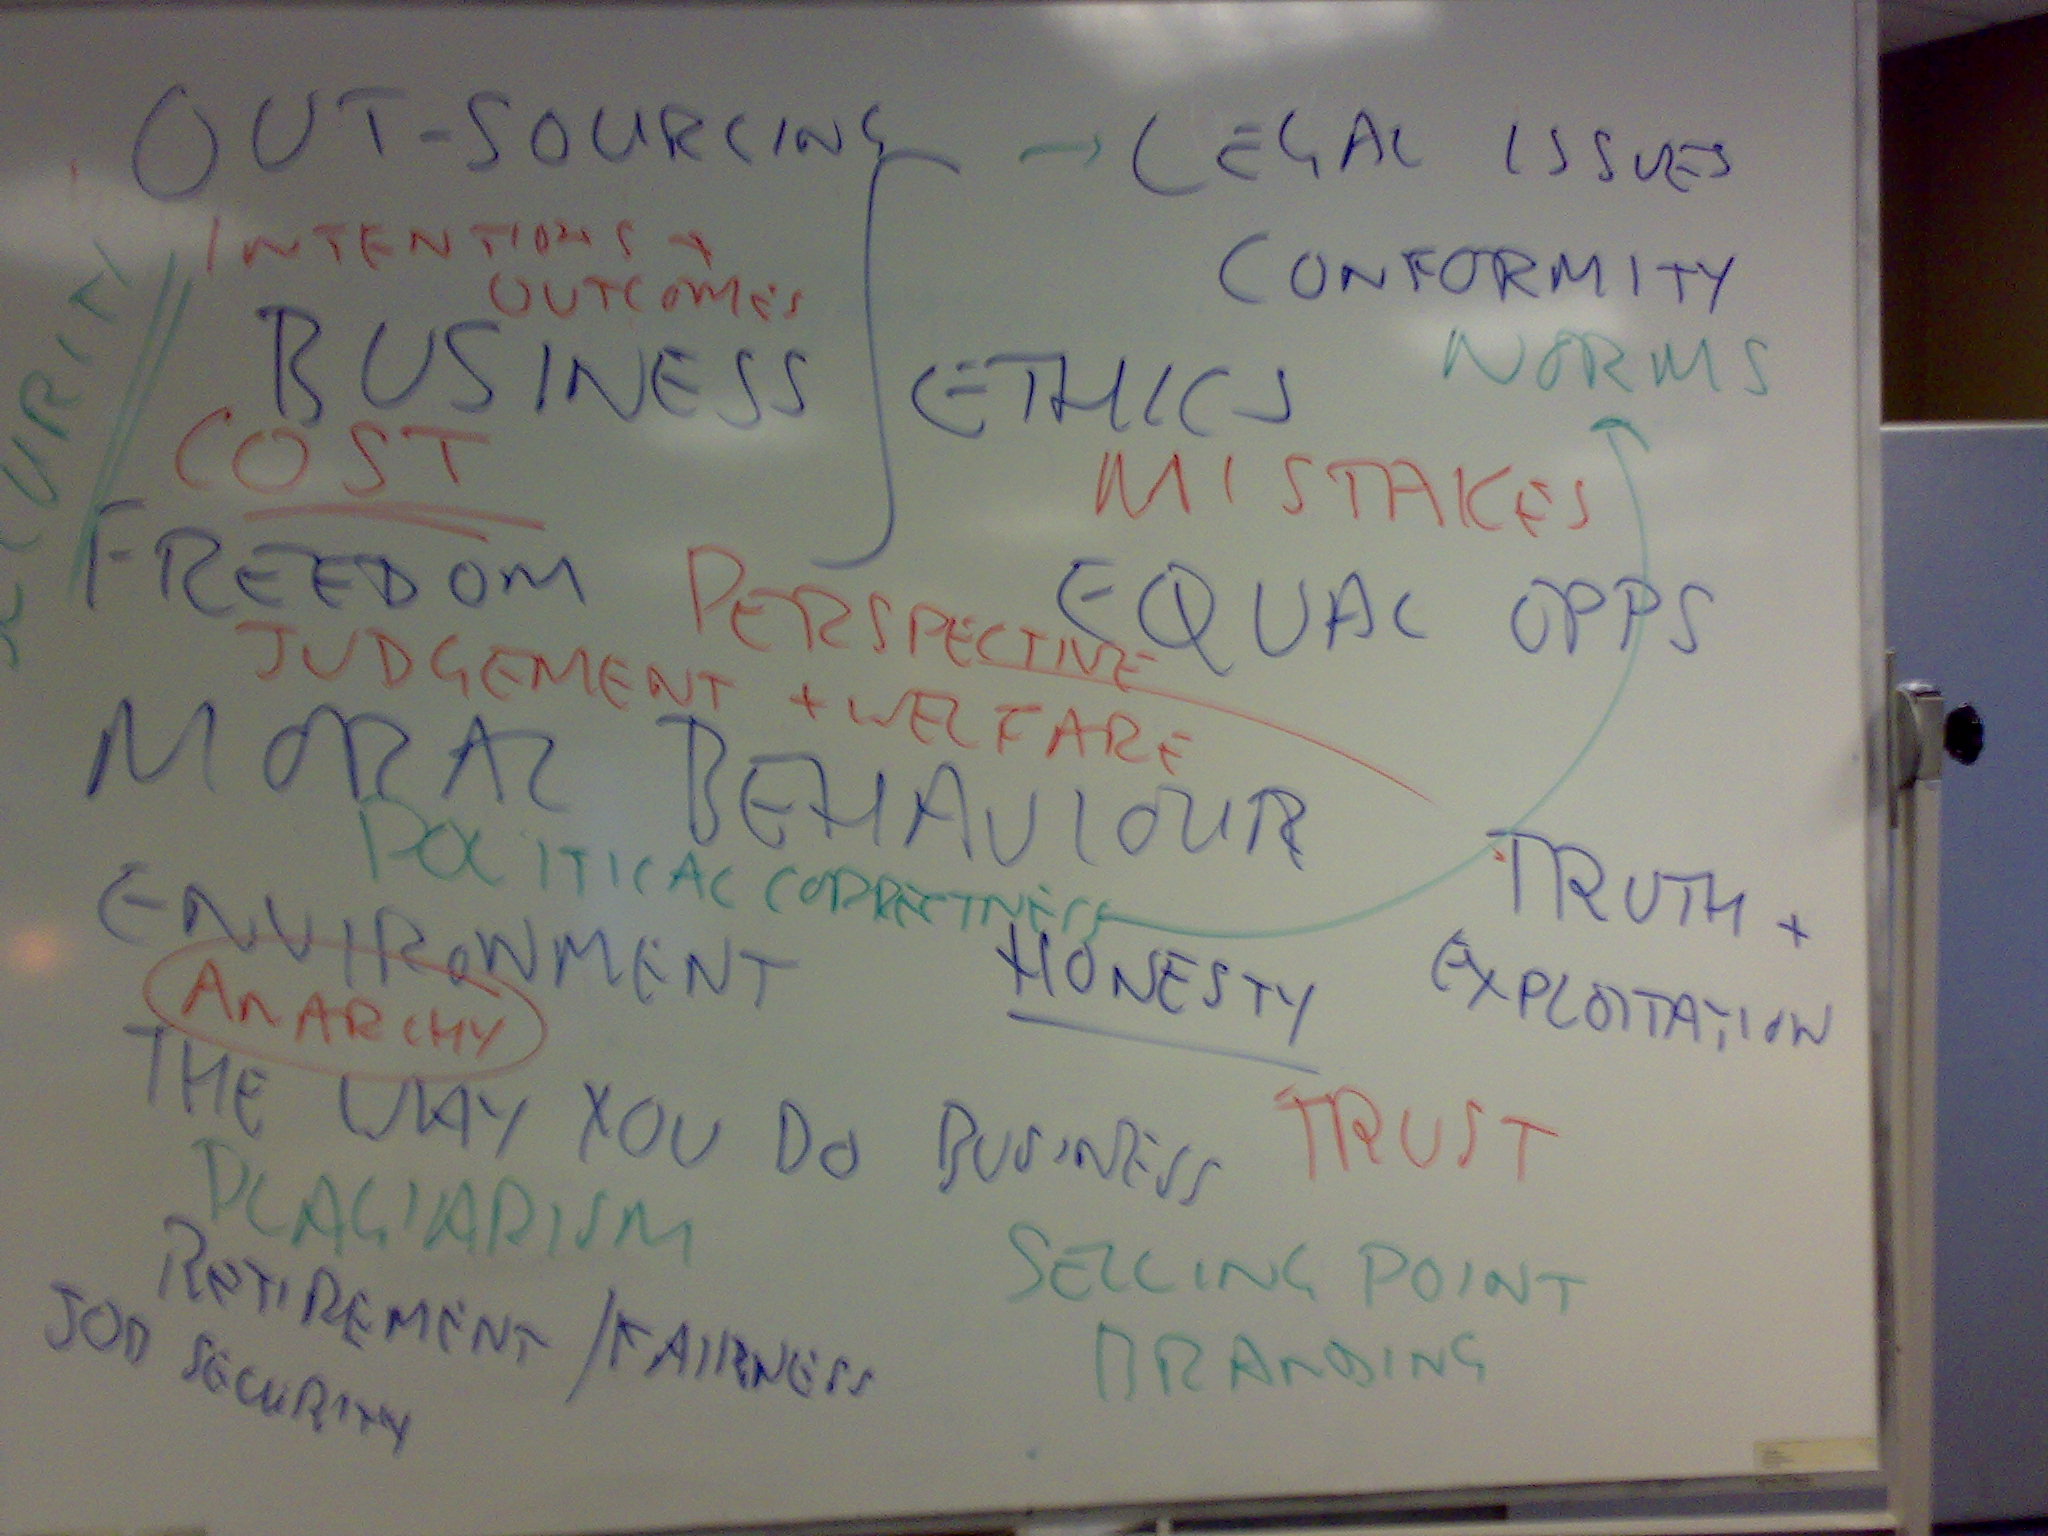 OUT-SOURCING → LEGAL ISSUES
INTENTIONS →
OUTCOMES
CONFORMITY
NORMS
BUSINESS ETHICS
COST
MISTAKES
FREEDOM
PERSPECTIVE
EQUAL OPPS
JUDGEMENT + WELFARE
MORAL BEHAVIOUR
POLITICAL CORRECTNESS
TRUTH +
EXPLOITATION
ENVIRONMENT
HONESTY
ANARCHY
THE WAY YOU DO BUSINESS
TRUST
PLAGIARISM
SELLING POINT
BRANDING
RETIREMENT / FAIRNESS
JOB SECURITY
SECURITY